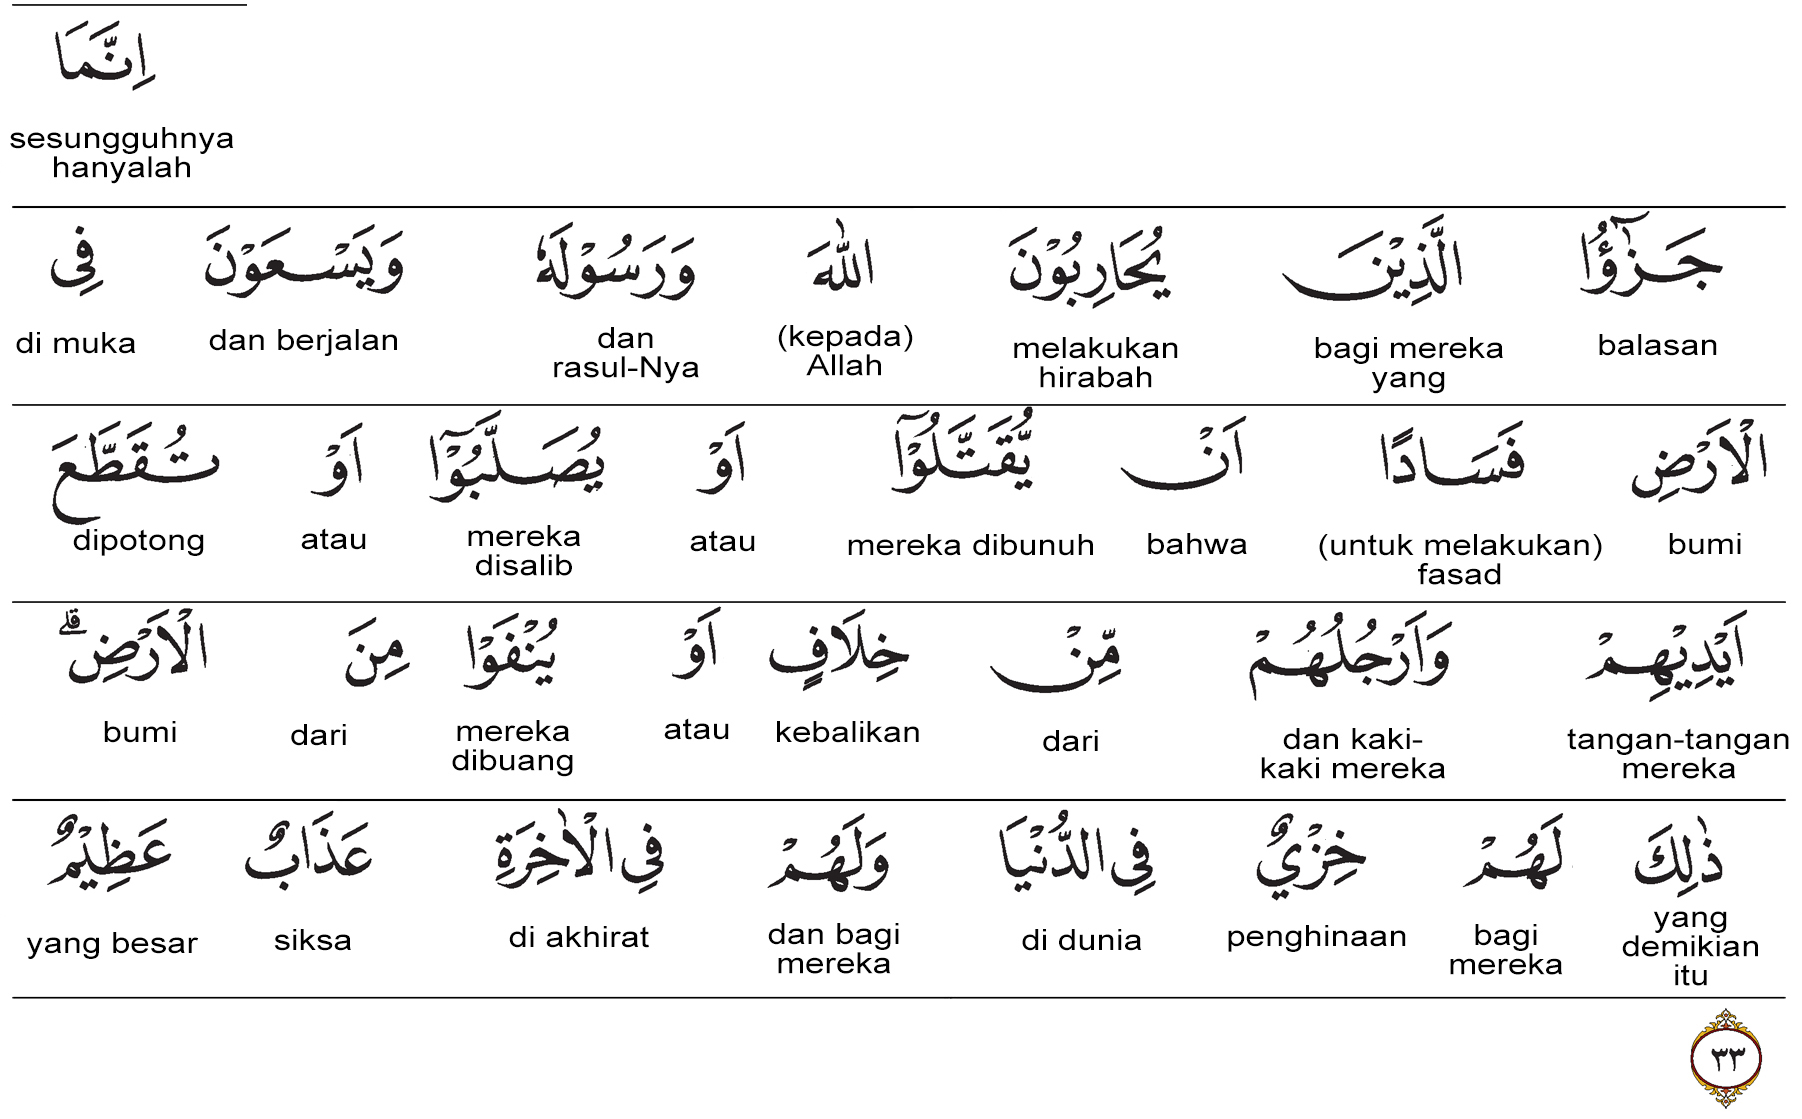 اِنَّمَا
sesungguhnya
hanyalah
جَزٰۤؤُا الَّذِيْنَ يُحَارِبُوْنَ اللّٰهَ وَرَسُوْلَهٗ وَيَسْعَوْنَ فِى
balasan bagi mereka yang melakukan hirabah (kepada) Allah dan rasul-Nya dan berjalan di muka
الْاَرْضِ فَسَادًا اَنْ يُّقَتَّلُوْٓا اَوْ يُصَلَّبُوْٓا اَوْ تُقَطَّعَ
bumi (untuk melakukan) fasad bahwa mereka dibunuh atau mereka disalib atau dipotong
اَيْدِيْهِمْ وَاَرْجُلُهُمْ مِّنْ خِلَافٍ اَوْ يُنْفَوْا مِنَ الْاَرْضِۗ
tangan-tangan mereka dan kaki-kaki mereka dari kebalikan atau mereka dibuang dari bumi
ذٰلِكَ لَهُمْ خِزْيٌ فِى الدُّنْيَا وَلَهُمْ فِى الْاٰخِرَةِ عَذَابٌ عَظِيْمٌ
yang demikian itu bagi mereka penghinaan di dunia dan bagi mereka di akhirat siksa yang besar
٣٣